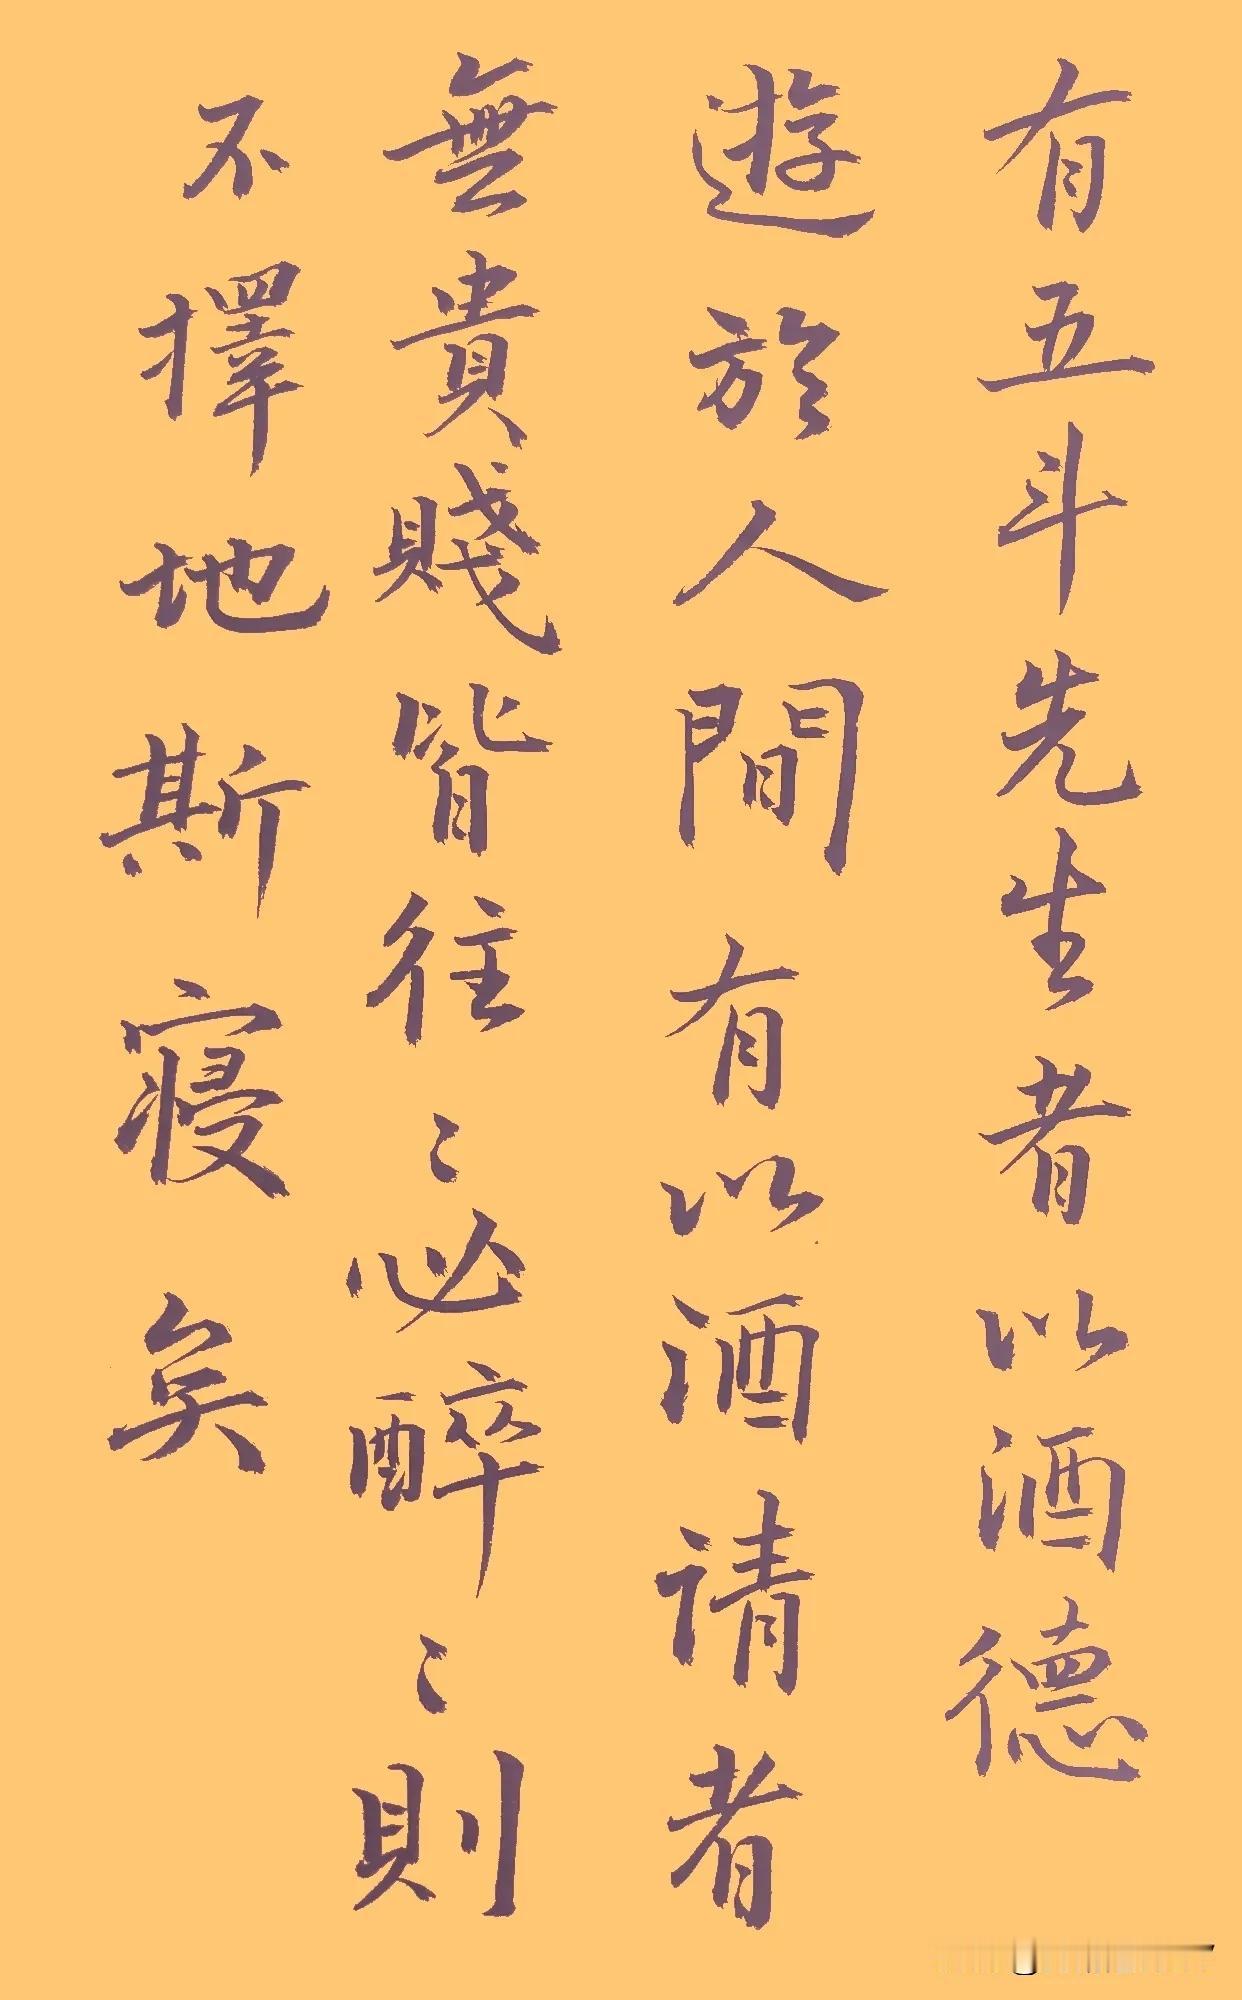 有五斗先生者以酒德
遊於人間有以酒请者
無貴賤皆往〻必醉〻則
不擇地斯寢矣